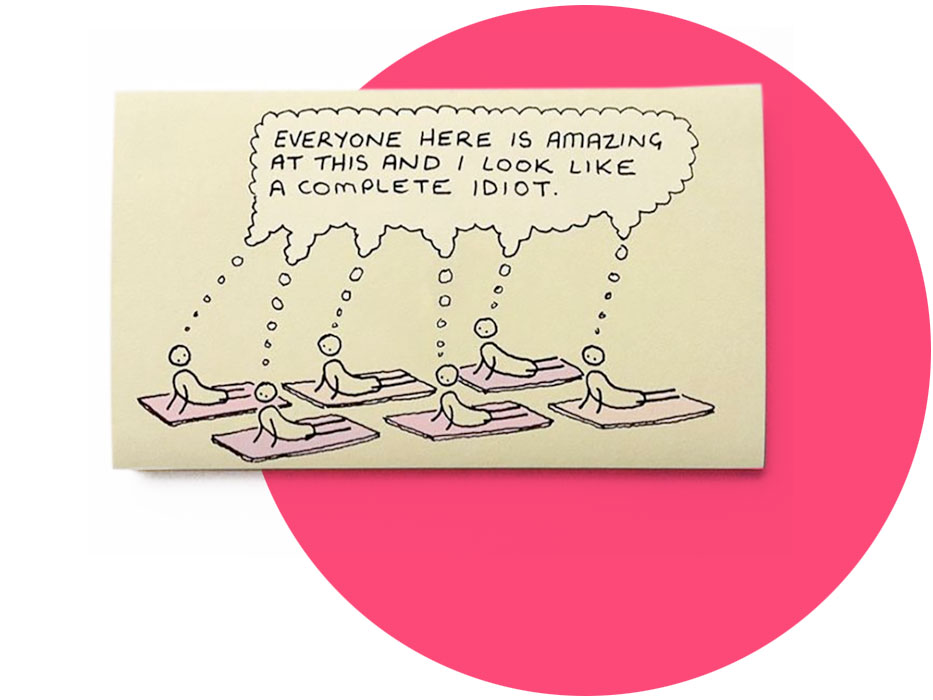 EVERYONE HERE IS AMAZING
AT THIS AND I LOOK LIKE
A COMPLETE IDIOT.